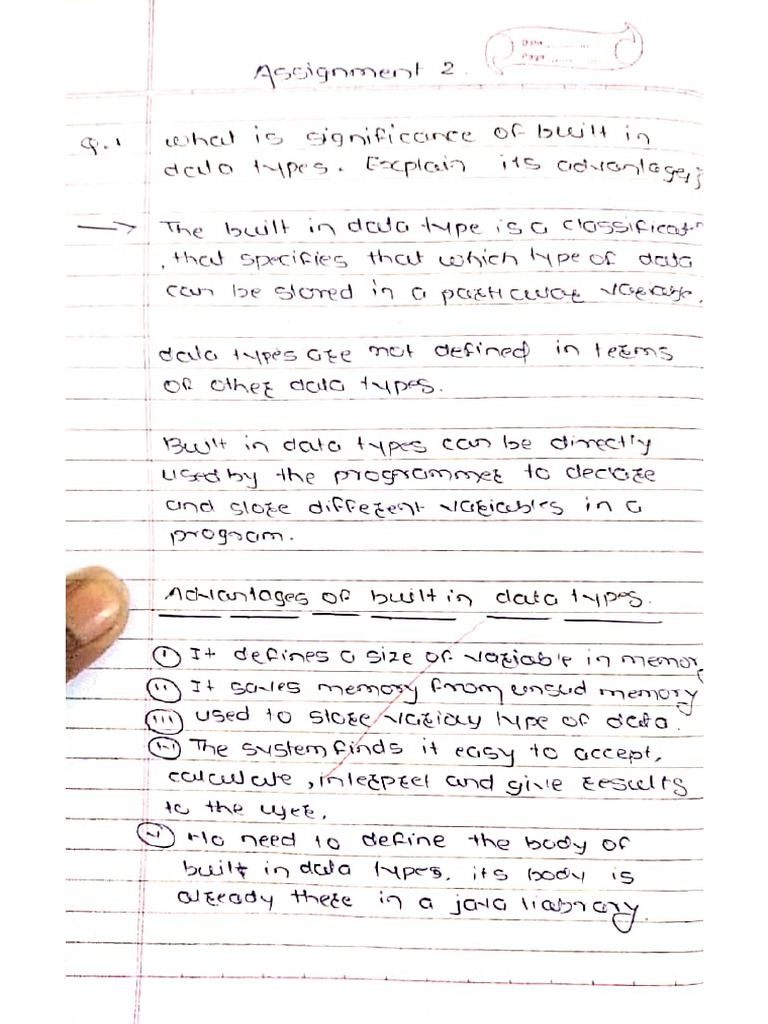 Date
Page
Assignment 2.
Q.1 What is significance of built in
data types. Explain its advantages
→ The built in data type is a classificatn
, that specifies that which type of data
can be stored in a particular variable.
data types are not defined in terms
of other data types.
Built in data types can be directly
used by the programmer to declare
and store different variables in a
program.
Advantages of built in data types.
(i) It defines a size of variable in memory
(ii) It saves memory from unsud memory
(iii) used to store variay type of data.
(iv) The system finds it easy to accept,
calculate, interpret and give results
to the user.
(v) No need to define the body of
built in data types. its body is
already there in a java liabrary.